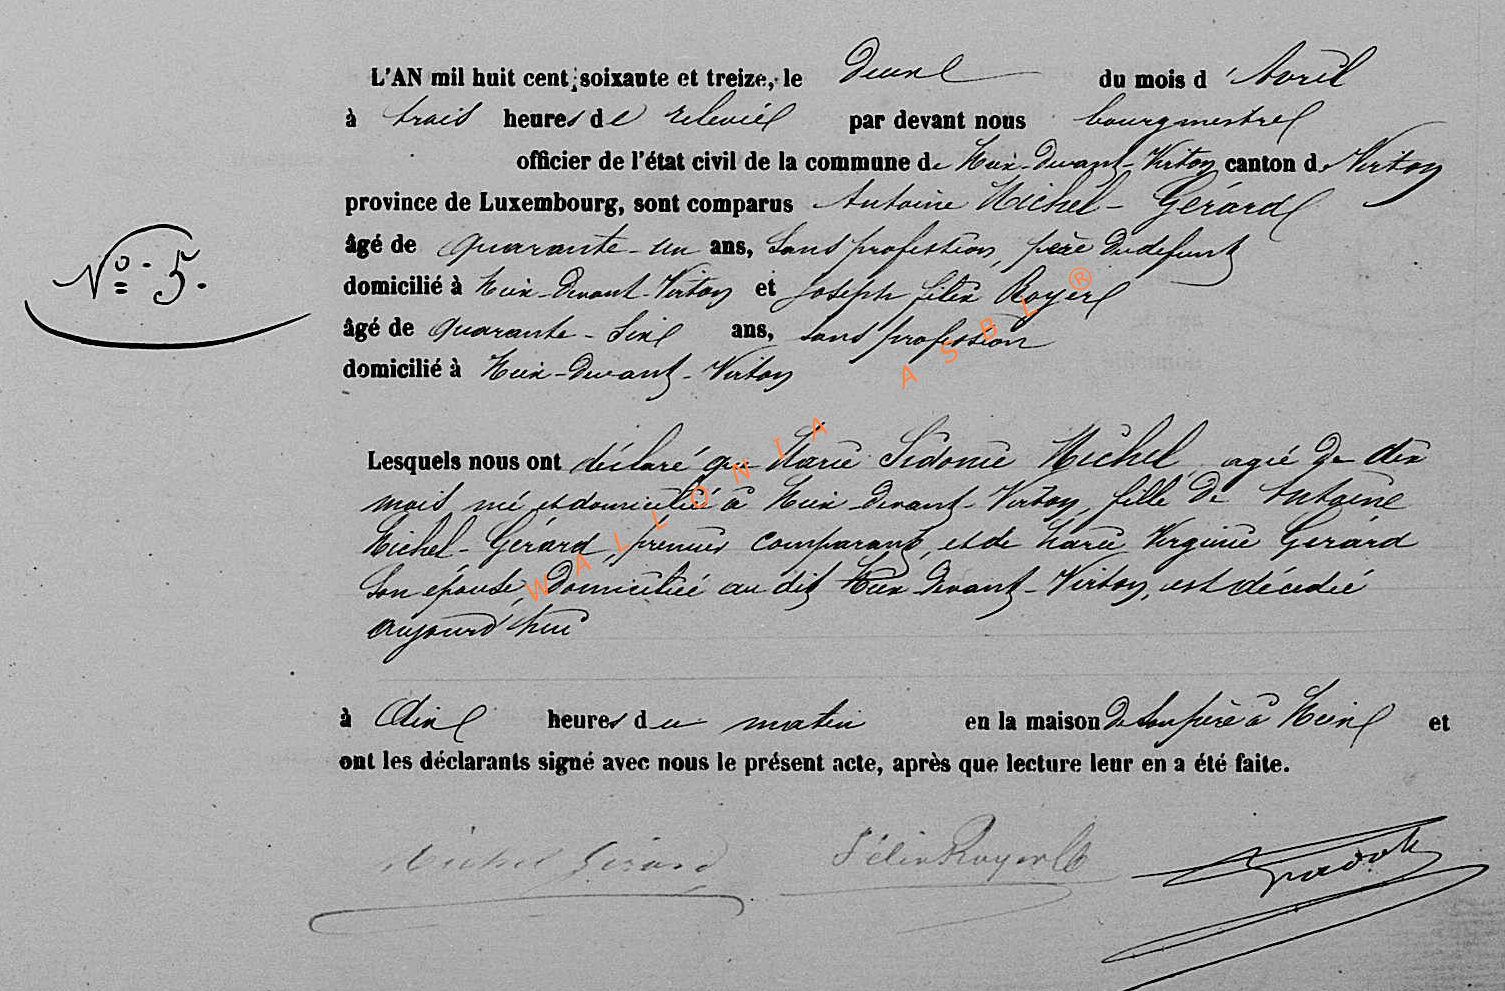 L'AN mil huit cent soixante et treize, le deux du mois d'Avril
à trois heures de relevée par devant nous bourgmestre
officier de l'état civil de la commune de Meix-Devant-Virton canton de Virton
province de Luxembourg, sont comparus Antoine Michel-Gérard
N° 5.
âgé de quarante-un ans, sans profession, père du défunt
domicilié à Meix-Devant-Virton et Joseph félix Royer
âgé de quarante-six ans, sans profession
domicilié à Meix-Devant-Virton
Lesquels nous ont déclaré que Marie Sidonie Michel, agée de dix
mois née et domiciliée à Meix-devant-Virton, fille de Antoine
Michel-Gérard, premier comparant, et de Marie Virginie Gérard
son épouse, domiciliée au dit Meix devant-Virton, est décédée
aujourd'hui
à dix heures du matin en la maison de son père à Meix et
ont les déclarants signé avec nous le présent acte, après que lecture leur en a été faite.
Michel Gérard Félix Royer
WALLONIA ASBL ®